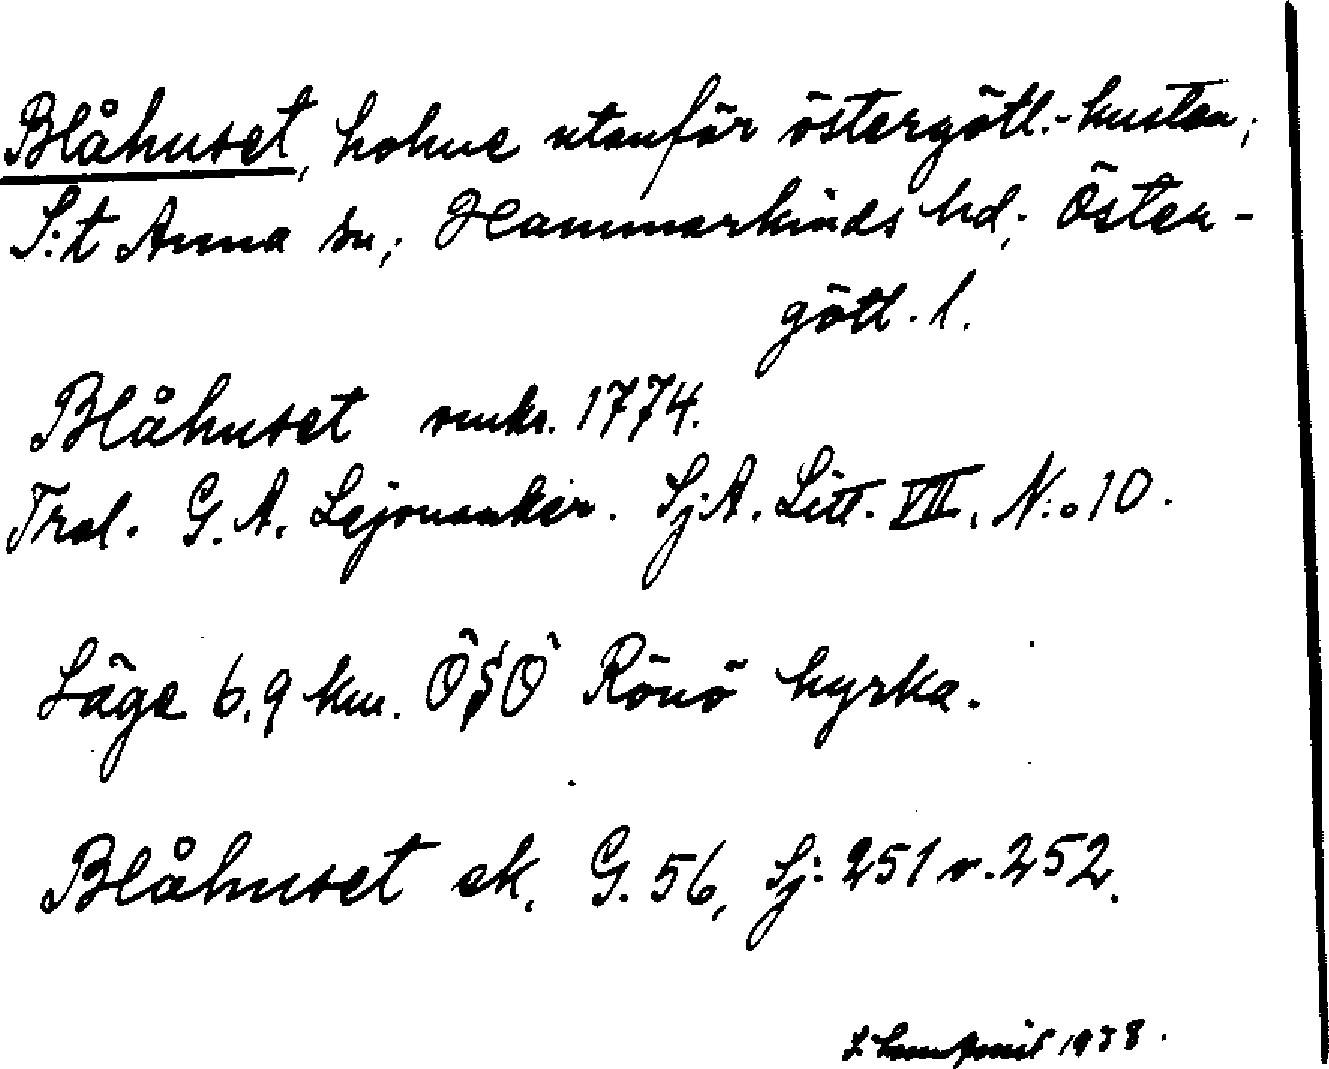 Blåhuset, holme utanför östergötl.-kusten;
S:t Anna sn; Hammarkinds hd; Öster-
götl. l.
Blåhuset rmks. 1774.
Tral. G. A. Lejonanker. Sj.A. Litt. VII. N:o 10.
Läge 6,9 km. ÖSÖ Rönö kyrka.
Blåhuset ek. G. 56, Sj: 251 o. 252.
1938.